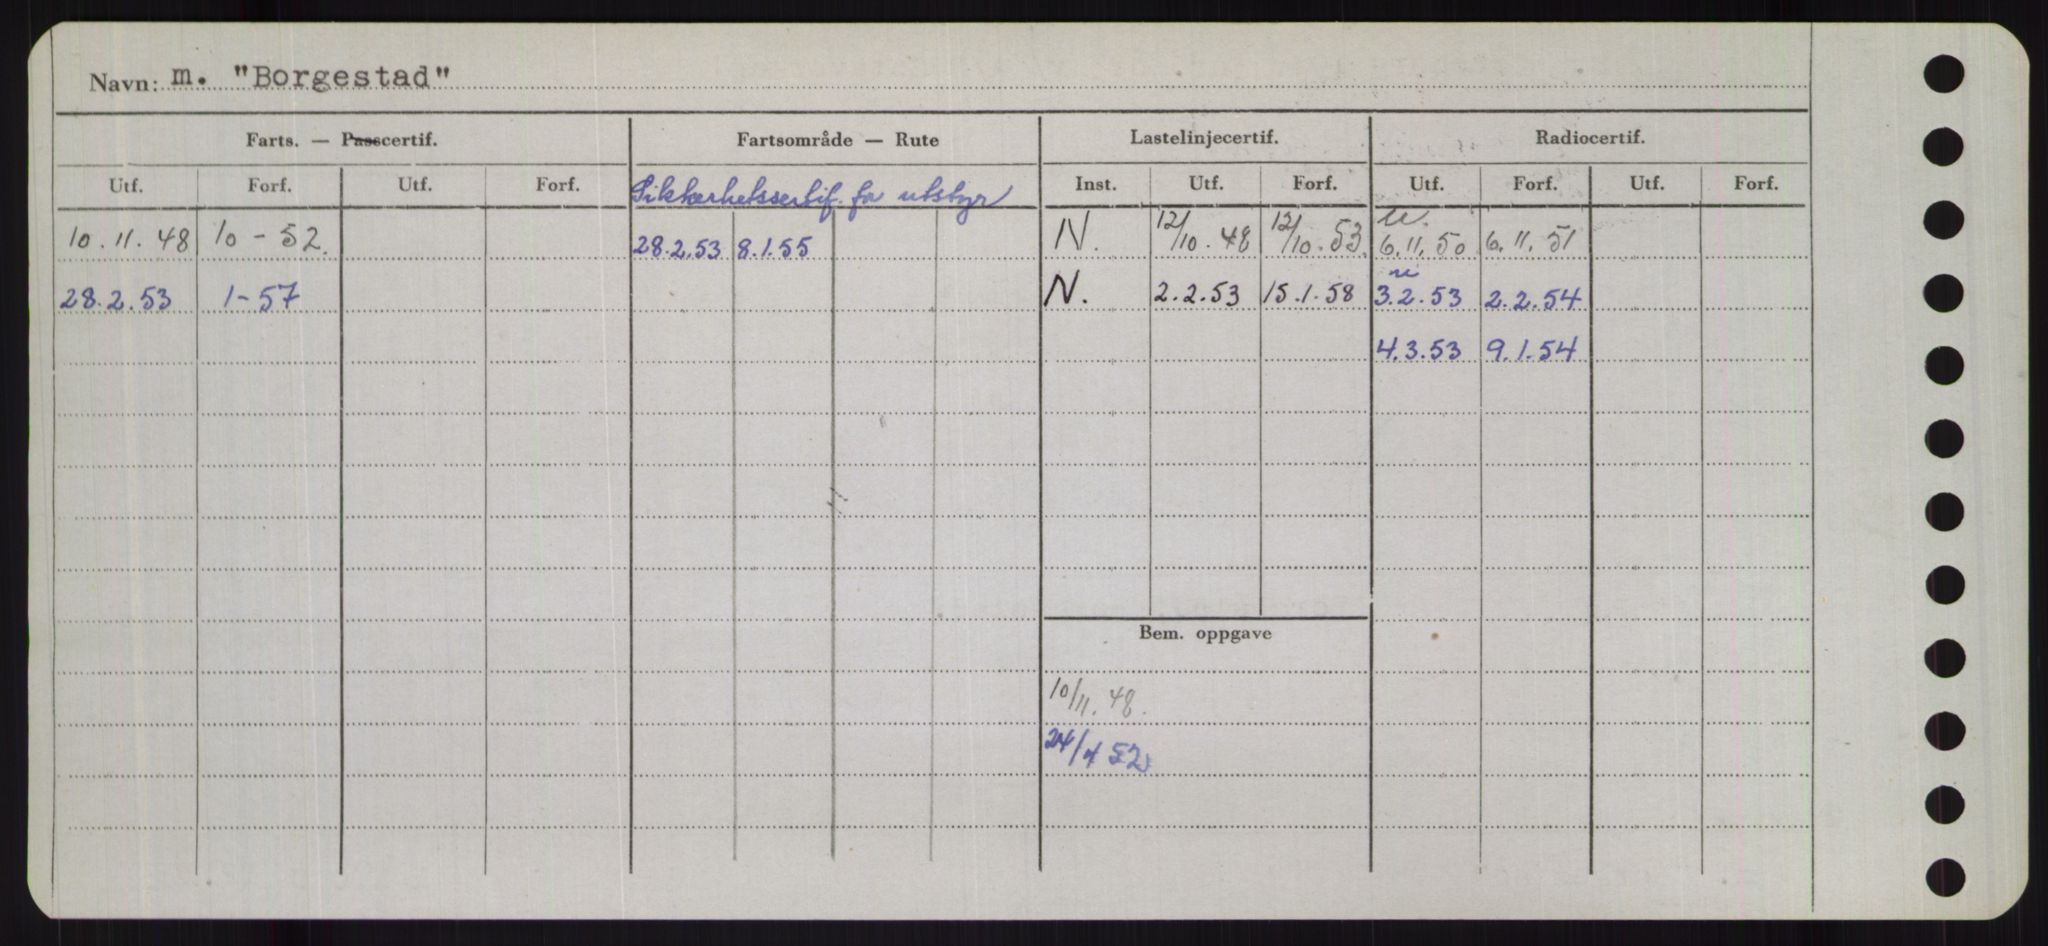 Navn: m. "Borgestad"
Farts. — Passcertif. Fartsområde — Rute Lastelinjecertif. Radiocertif.
Utf. Forf. Utf. Forf. Sikkerhetssertif. for utstyr Inst. Utf. Forf. Utf. Forf. Utf. Forf.
10.11.48 10-52. 28.2.53 8.1.55 N. 12/10.48 12/10.53. 6.11.50 6.11.51
28.2.53 1-57 N. 2.2.53 15.1.58 3.2.53 2.2.54
4.3.53 9.1.54
Bem. oppgave
10/11.48.
24/4 52